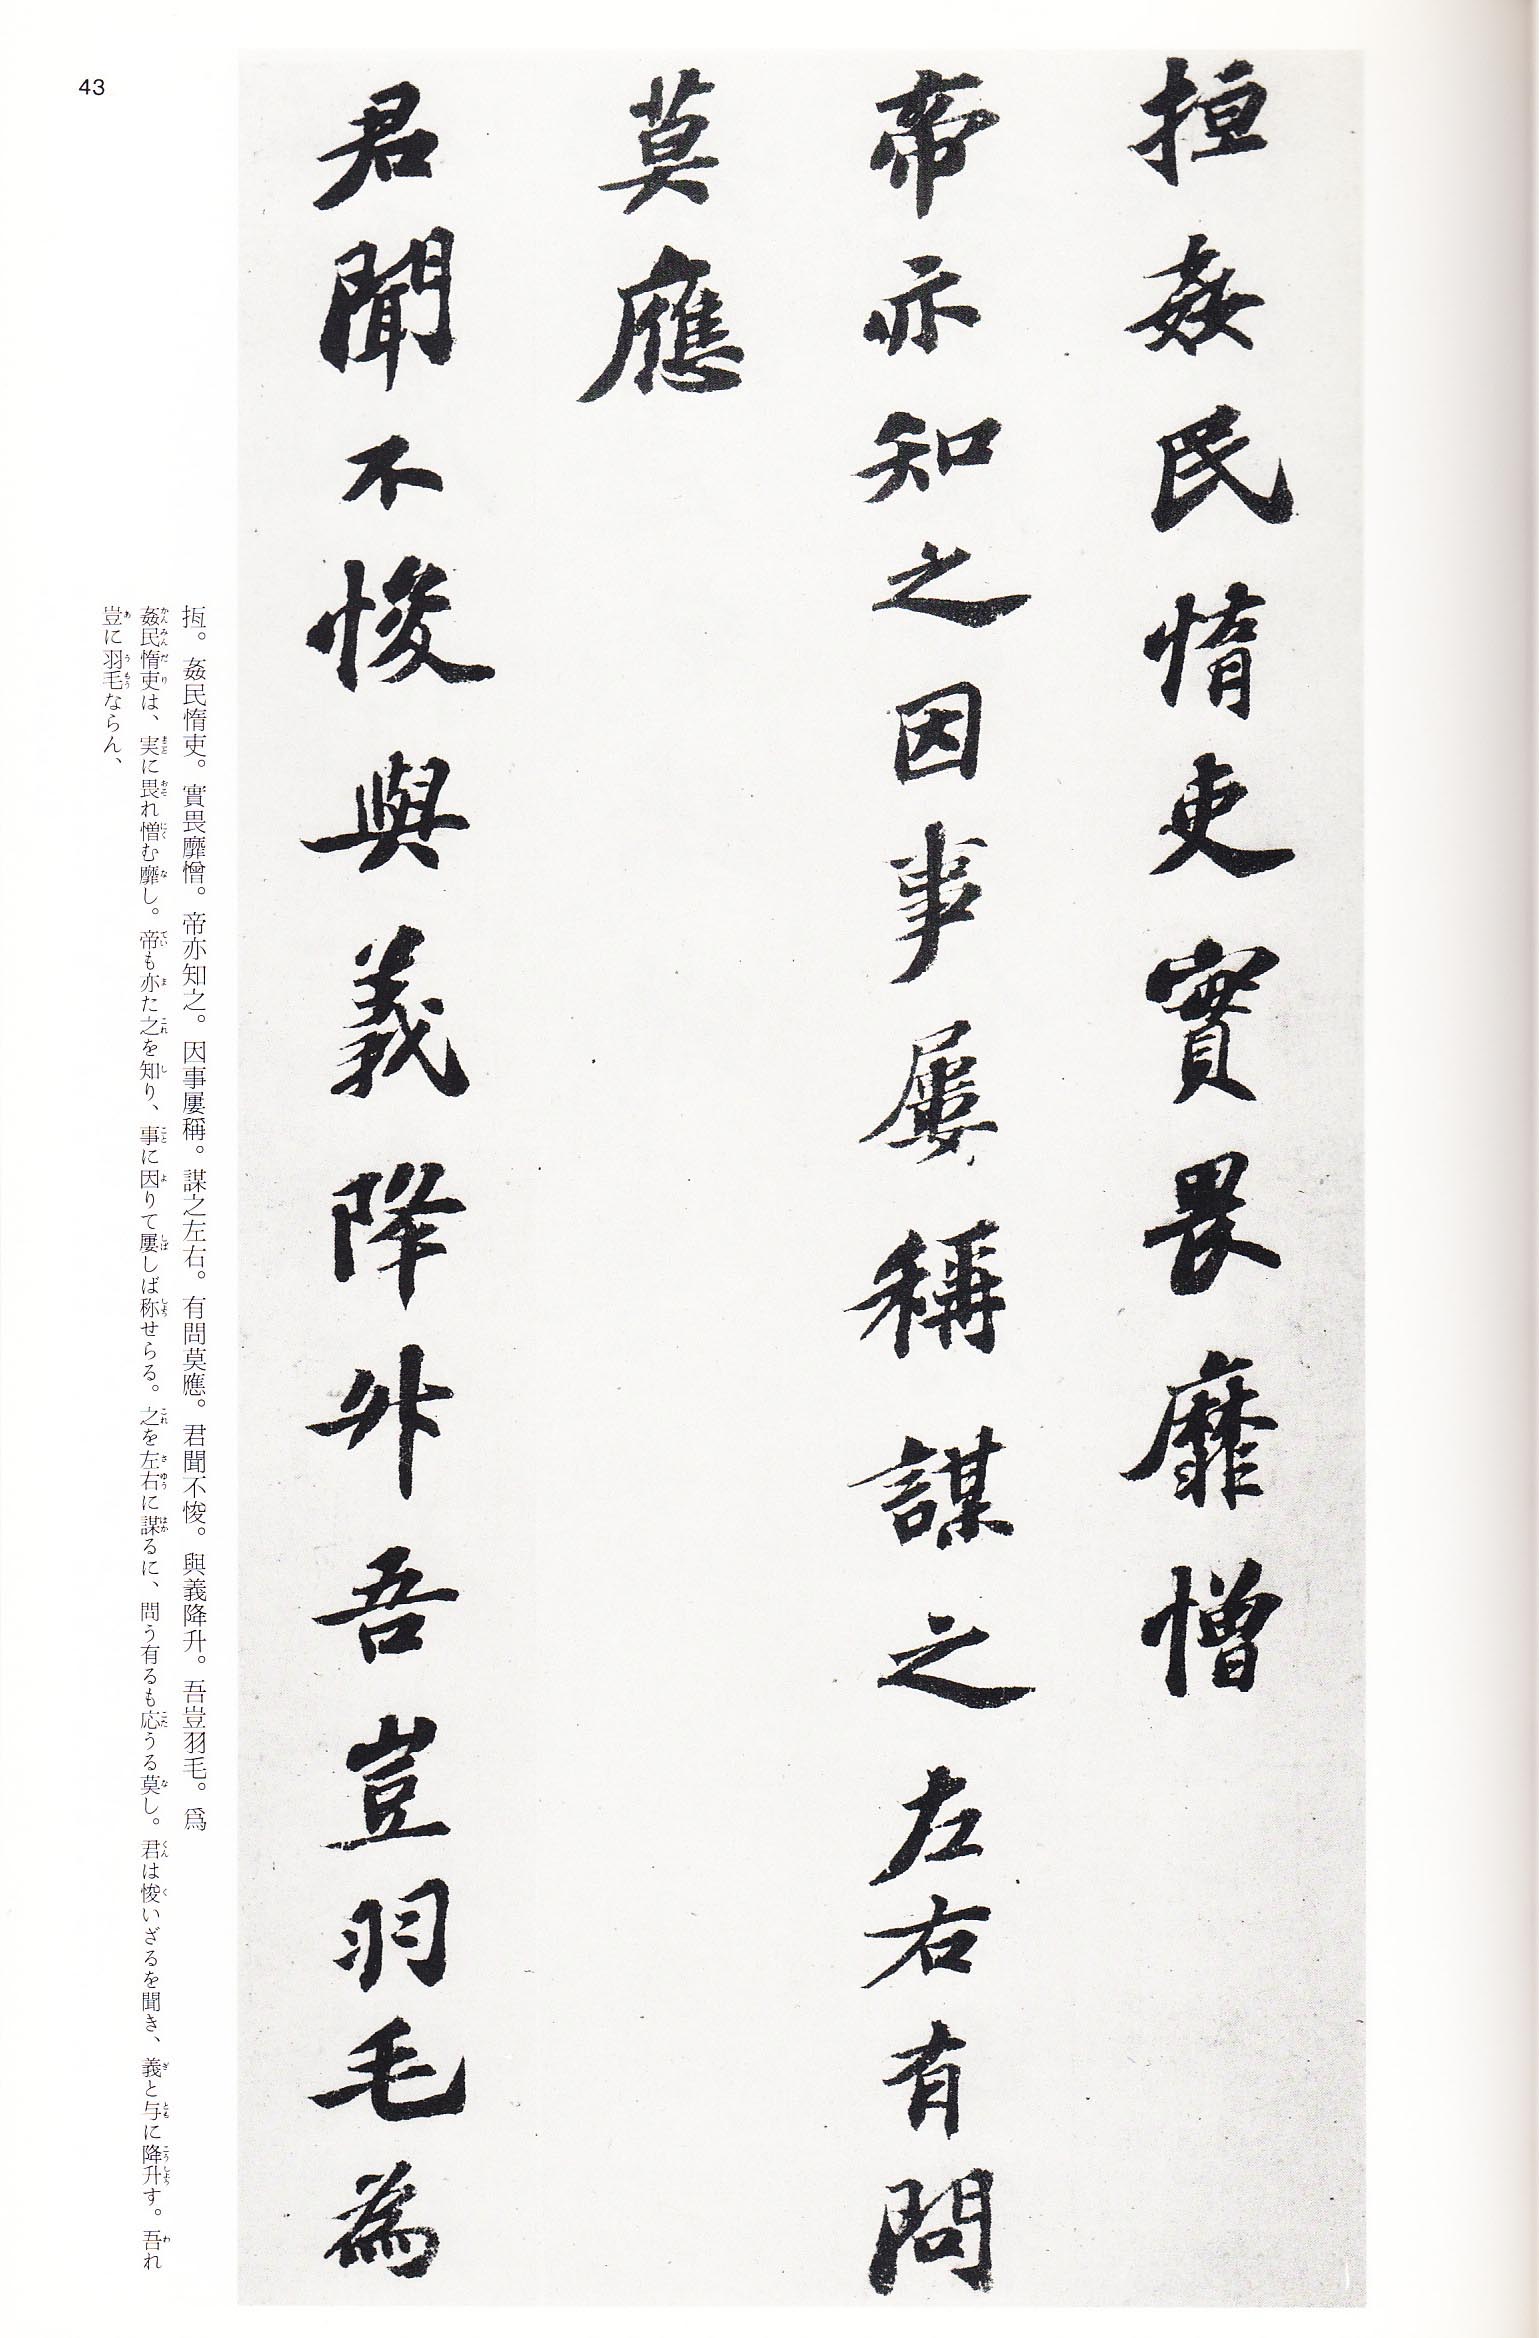 搄姦民惰吏實畏靡憎
帝亦知之因事屢稱謀之左右有問
莫應
君聞不悛與義降升吾豈羽毛為
搄。姦民惰吏。實畏靡憎。帝亦知之。因事屢稱。謀之左右。有問莫應。君聞不悛。與義降升。吾豈羽毛。爲
姦民惰吏は、実に畏れ憎む靡し。帝も亦た之を知り、事に因りて屢しば称せらる。之を左右に謀るに、問う有るも応うる莫し。君は悛いざるを聞き、義と与に降升す。吾れ
豈に羽毛ならん、
43